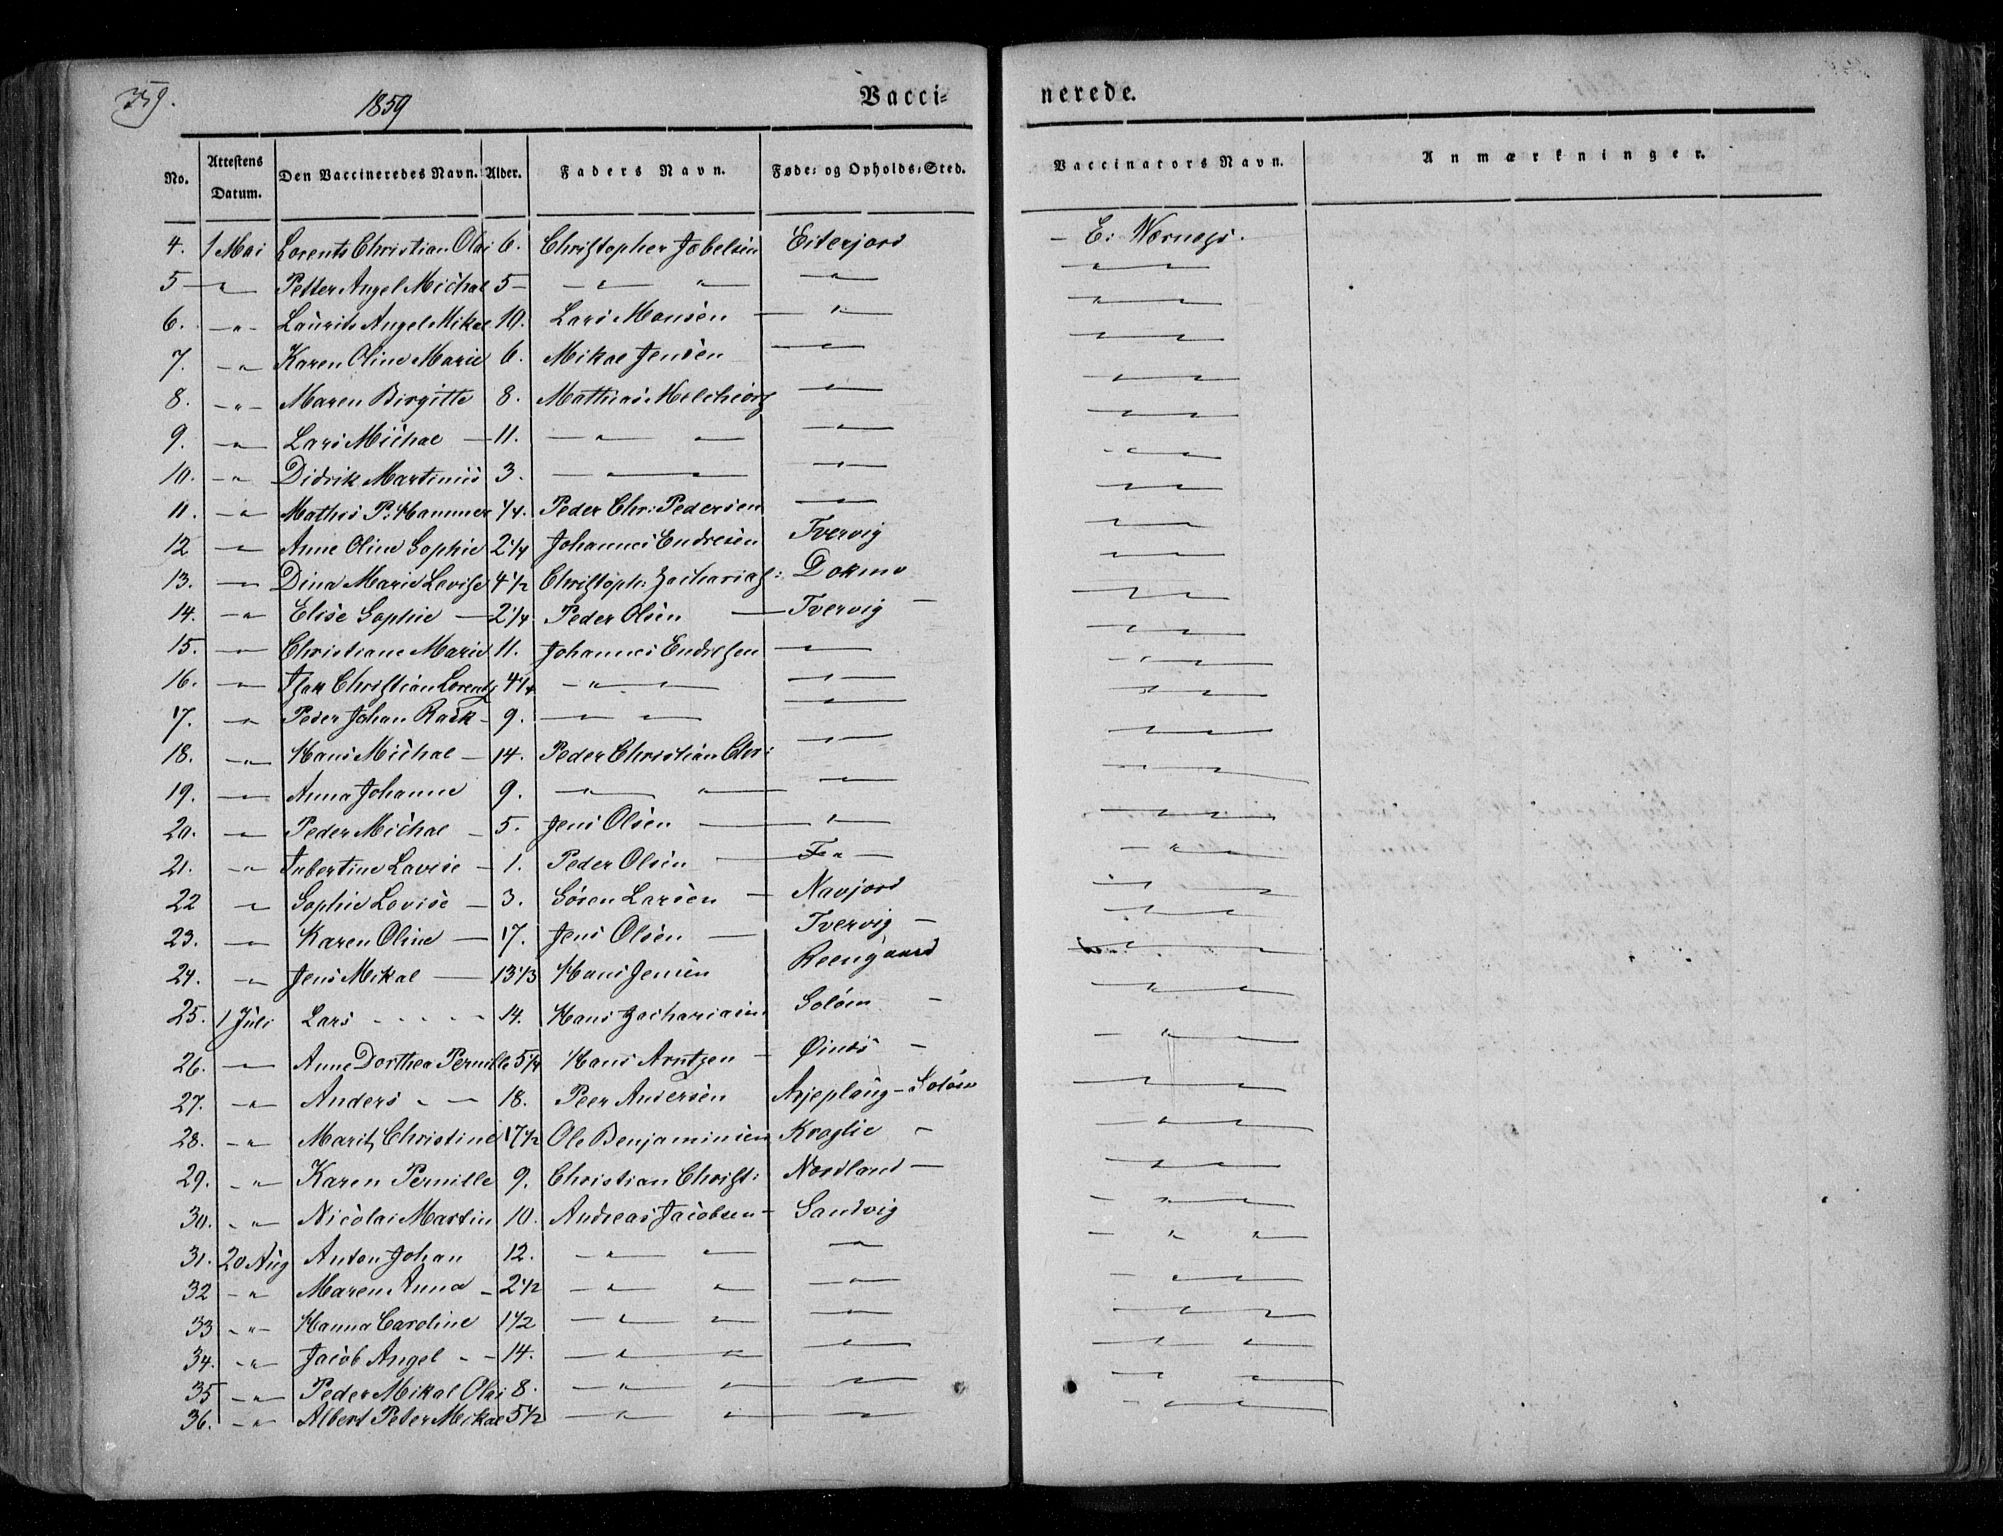 359.
1859
Vacci= nerede.
No. Attestens Datum. Den Vaccineredes Navn. Alder. Faders Navn. Føde= og Opholds=Sted. Vaccinators Navn. Anmærkninger.
4. 1 Mai Lorents Christian Olai 6. Christopher Jobelsen Eiterjord — E:
5 — " Petter Angel Michal 5 — " " — " —
6. — " — Laurits Angel Mikal 10. Lars Monsen — " —
7. — " Karen Oline Marie 6. Mikal Jensen — " —
8. — " — Maren Birgitte 8. Mathias Melchiors — " —
9. — " Lars Michal — 11. — " — " — " —
10. — " Didrik Martinus 3. — " — " — " —
11. — " Mathis P. Hammer 1/4. Peder Chr: Pedersen — " —
12 — " Anne Oline Sophie 2 1/4 Johannes Endresen Tvervig
13. — " Dina Marie Lovise 4 1/2 Christoph: Zacharias: Dokmo
14. — " Elise Sophie — 2 1/4 Peder Olsen — Tvervig —
15. — " Christiane Marie 11. Johannes Endresen — " —
16. — " Isak Christian Lorents 4 1/4 — " — " — " —
17. — " Peder Johan Rask — 9. — " — " — " —
18. — " Hans Michal — 14. Peder Christian Chr: — " —
19. — " Anna Johanne 9. — " — " — " —
20. — " Peder Michal — 5. Jens Olsen — " —
21. — " Lovise — 1. Peder Olsen — " —
22 — " Sophie Lovise — 3. Sören Larsen — Navjord
23. — " Karen Oline — 17. Jens Olsen — Tvervig —
24. — " Jens Mikal — 13 1/3 Hans Jensen Reengaard
25. 1 Juli Lars - - - - - 14. Hans Zachariasen —
26. — " Anne Dorthea Pernille 5 1/4 Hans Arntzen — —
27. — " Anders - — 18. Peer Andersen Arjeploug —
28. — " Marit Christine 17 1/2 Ole Benjaminsen Kroglie —
29. — " Karen Pernille 9. Christian Christ: Nordland —
30. — " Nicolai Martin 10. Andreas Jacobsen — Sandvig
31. 20 Aug Anton Johan 12. — " — " — " —
32 — " Maren Anna — 2 1/2 — " — " — " —
33 — " — Hanna Caroline 1 1/2 — " — " — " —
34. — " — Jacob Angel - — 14. — " — " — " —
35 — " Peder Mikal Olai 8. — " — " — " —
36. — " Albert Peter Mikal 5 1/2 — " — " — " —